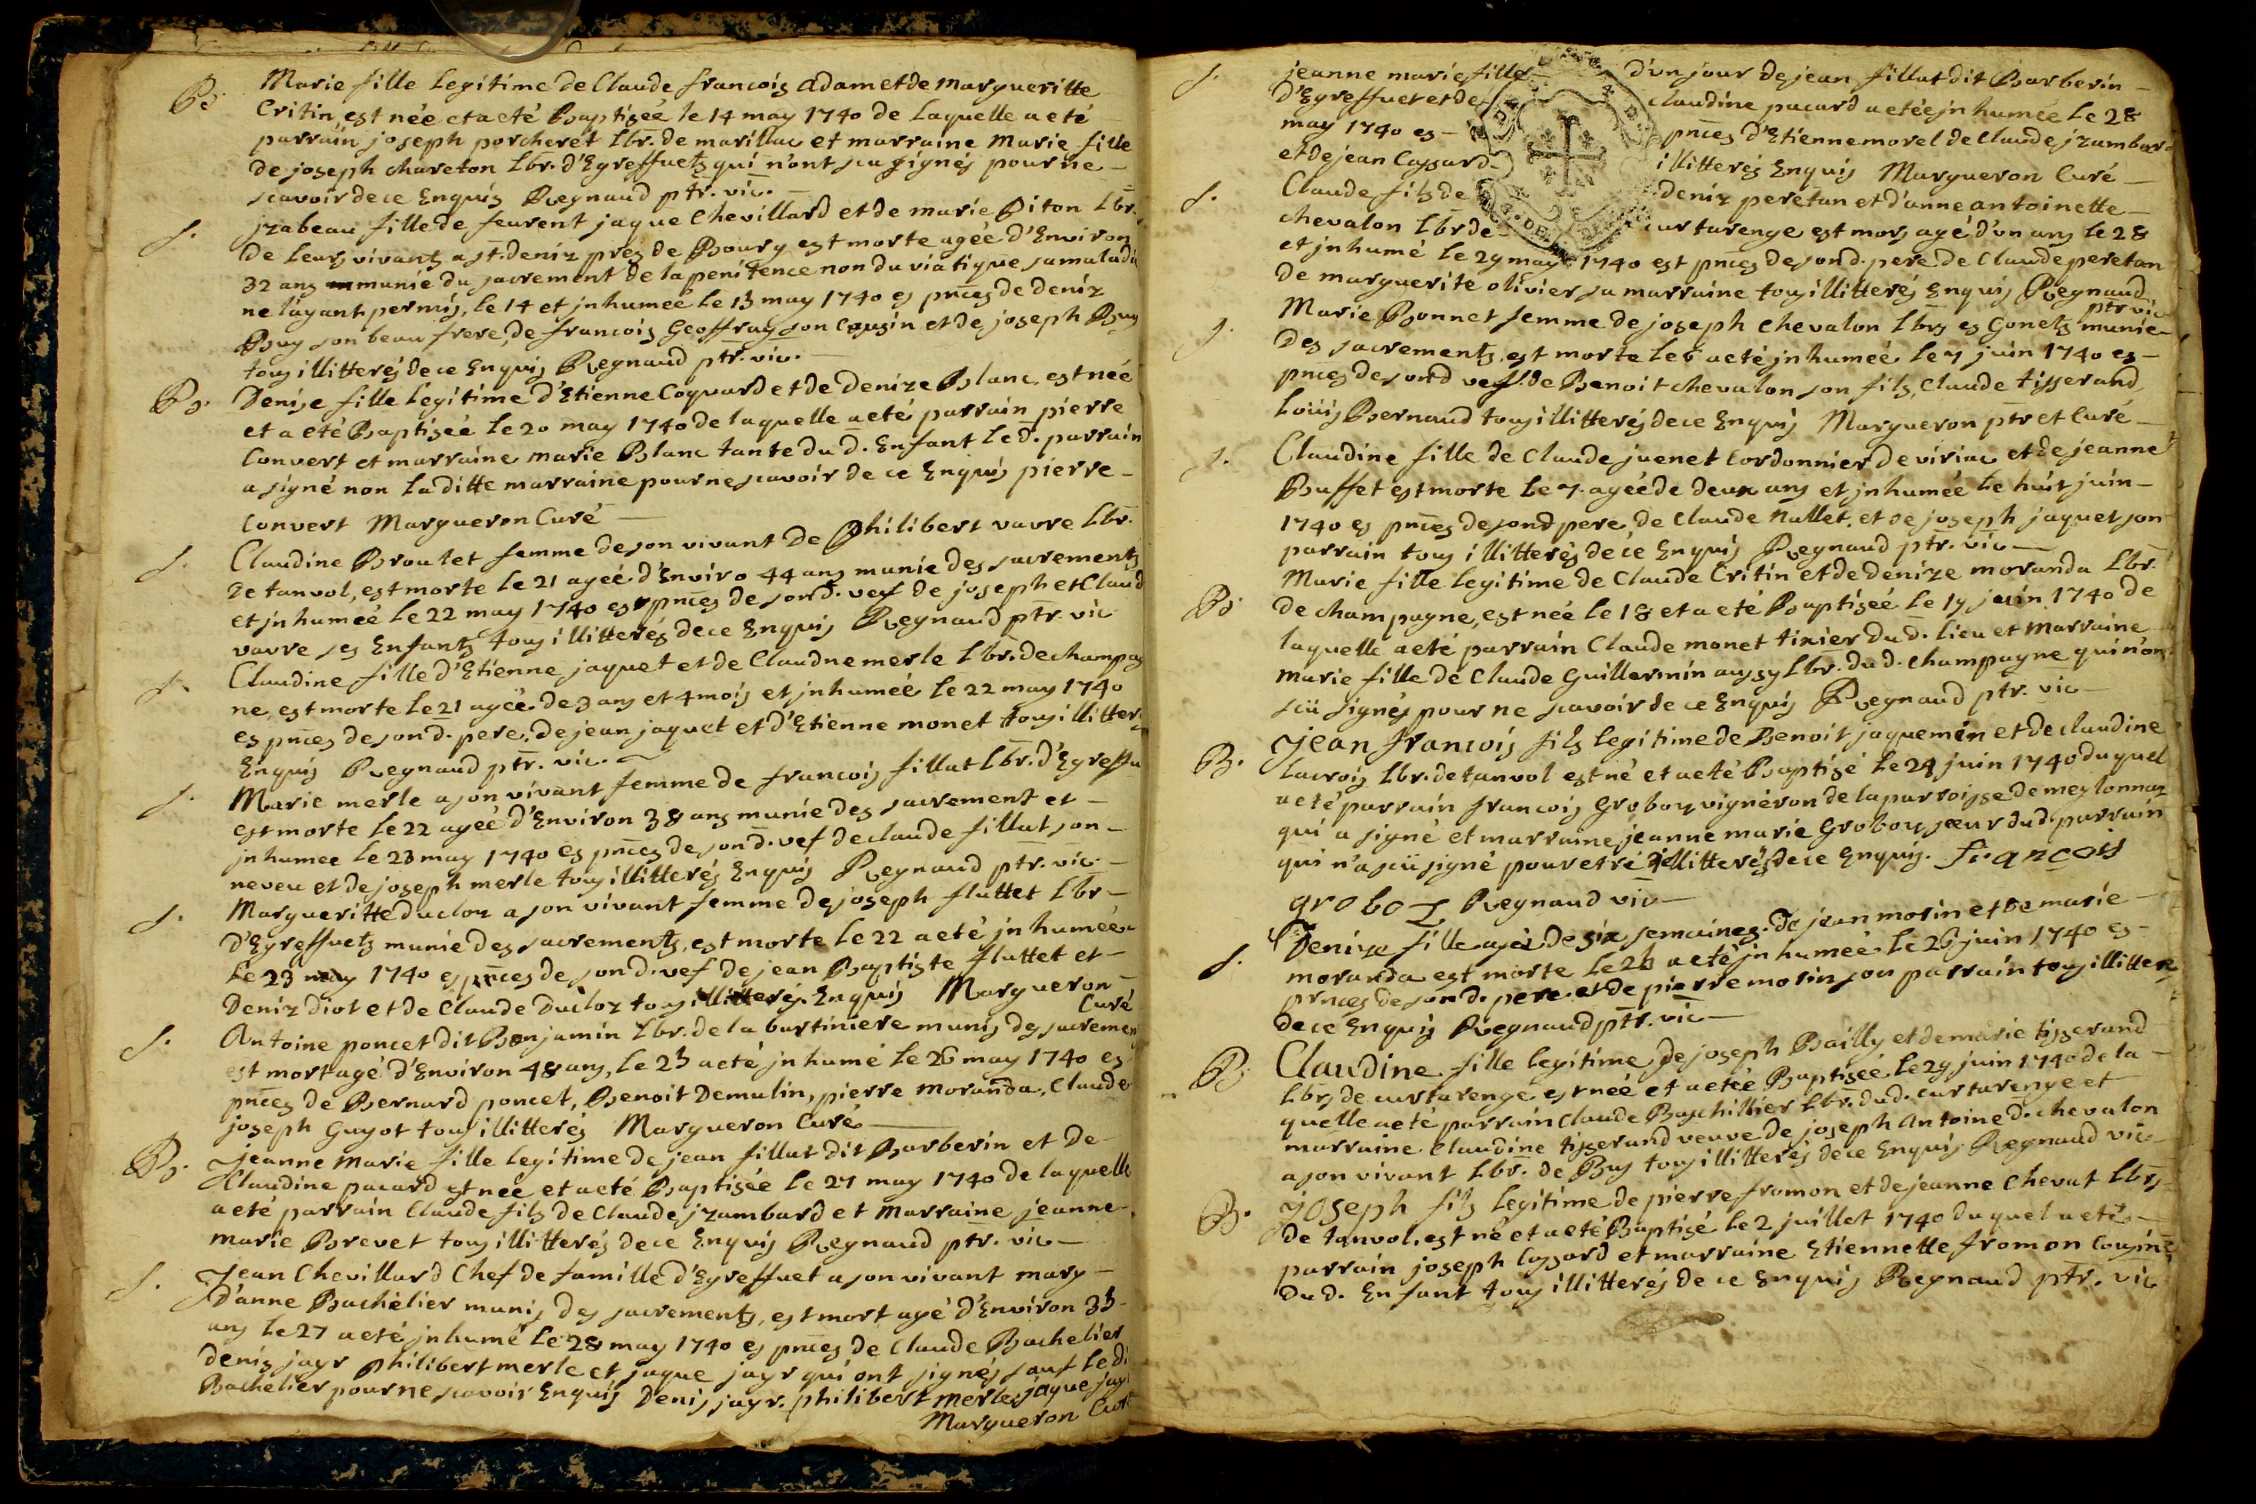 B. Marie fille legitime de Claude francois adam et de margueritte
Critin, est née et a eté Baptisée le 14 may 1740 de laquelle a eté
parrain joseph porcheret lbr. de marillac et marraine Marie fille
de joseph chareton lbr. d'Egreffuets qui n'ont scu signés pour ne
scavoir de ce Enquis Regnaud ptr. vic.
S. jzabeau fille de feurent jaque Chevillard et de marie Piton lbr.
de leurs vivants a st. deniz pres de Bourg est morte agée d'Environ
32 ans munie du sacrement de la penitence non du viatique sa maladie
ne layant permis, le 14 et jnhumeé le 15 may 1740 es pnces de deniz
Buy son beau frere, de francois Geoffray son Cousin et de joseph Buy
tous illitterés de ce Enquis Regnaud ptr. vic.
B. Denise fille legitime d'Etienne Coquard et de Denize Blanc, est neé
et a eté Baptiseé le 20 may 1740 de laquelle a eté parrain pierre
Convert et marraine marie Blanc tante du d. Enfant le d. parrain
a signé non la ditte marraine pour ne scavoir de ce Enquis pierre
Convert Margueron Curé
S. Claudine Broulet femme de son vivant de Philibert vavre lbr.
de tanvol, est morte le 21 ageé d'Enviro 44 ans munie des sacrements
et jnhumeé le 22 may 1740 es pnces de sond. vef de joseph et Claud
vavre ses Enfants tous illitterés de ce Enquis Regnaud ptr. vic
S. Claudine fille d'Etienne jaquet et de Claudne merle lbr. de champag
ne, est morte le 21 ageé de 3 ans et 4 mois et jnhumeé le 22 may 1740
es pnces de sond. pere, de jean jaquet et d'Etienne monet tous illitter
Enquis Regnaud ptr. vic.
S. Marie merle a son vivant femme de francois fillat lbr. d'Egreffu
est morte le 22 ageé d'Environ 38 ans munie des sacrement et
jnhumee le 23 may 1740 es pnces de sond. vef de claude fillat son
neveu et de joseph merle tous illitterés Enquis Regnaud ptr. vic.
S. Margueritte ducloz a son vivant femme de joseph fluttet lbr
d'Egreffuets munie des sacrements, est morte le 22 a eté jnhumeé
le 23 may 1740 es pnces de son d. vef de jean Baptiste fluttet et
Deniz diot et de Claude Ducloz tous illitterés Enquis Margueron
Curé
S. Antoine poncet dit Benjamin lbr. de la bartiniere munis des sacremen
est mort agé d'Environ 48 ans, le 25 a eté jnhumé le 26 may 1740 es
pnces de Bernard poncet, Benoit Demulin, pierre moranda, Claude
joseph Guyot tous illitterés Margueron Curé
B. jeanne Marie fille legitime de jean fillat dit Barberin et de
Claudine pacard est neé et a eté Baptiseé le 27 may 1740 de laquelle
a eté parrain Claude fils de Claude jzambard et Marraine jeanne
marie Brevet tous illitterés de ce Enquis Regnaud ptr. vic
S. Jean Chevillard Chef de famille d'Egreffuet a son vivant mary
d'anne Bachelier munis des sacrements, est mort agé d'Environ 35
ans le 27 a eté jnhumé le 28 may 1740 es pnces de Claude Bachelier
denis jayr Philibert merle et jaque jayr qui ont signés sauf le di
Bachelier pour ne scavoir Enquis Denis jayr. philibert merle jaque jayr
Margueron Curé
S. jeanne marie fille d'un jour de jean fillat dit Barberin
d'Egreffuet et de claudine pacard a eteé jnhumeé le 28
may 1740 es pnces d'Etienne morel de Claude jzambar
et de jean Cassard illitterés Enquis Margueron Curé
S. Claude fils de deniz peretan et d'anne antoinette
chevalon lbr de curtarenge est mors agé d'un ans le 28
et jnhumé le 29 may 1740 est pnces de son d. pere de Claude peretan
de marguerite olivier sa marraine tous illitterés Enquis Regnaud
ptr vic
S. Marie Bonnet femme de joseph chevalon lbrs es Gonets munie
des sacrements, est morte le 6 a eté jnhumeé le 7 juin 1740 es
pnces de sond vef de Benoit chevalon son fils, Claude tisserand
Loüis Bernaud tous illitterés de ce Enquis Margueron ptr et Curé
S. Claudine fille de Claude juenet Cordonnier de viriac et de jeanne
Buffet est morte le 7. ageé de deux ans et jnhumeé le huit juin
1740 es pnces de sond pere, de Claude nallet, et de joseph jaquet son
parrain tous illitterés de ce Enquis Regnaud ptr. vic
B. Marie fille legitime de Claude Critin et de denize moranda lbr.
de champagne, est née le 18 et a eté Baptiseé le 19 juin 1740 de
laquelle a eté parrain Claude monet tixier du d. lieu et Marraine
marie fille de Claude Guillermin aussy lbr. du d. champagne qui n'on
scü signés pour ne scavoir de ce Enquis Regnaud ptr. vic
B. Jean francois fils legitime de Benoit jaquemin et de claudine
lacroix lbr. de tanvol est né et a eté Baptisé le 24 juin 1740 duquel
a eté parrain francois Groboz vigneron de la parroisse de meylonnaz
qui a signé et marraine jeanne marie Groboz sœur du d. parrain
qui n'a scü signé pour etre illitterés de ce Enquis. francois
groboz Regnaud vic
S. Denize fille ageé de six semaines de jean morin et de marie
moranda est morte le 25 a eté jnhumeé le 26 juin 1740 es
prnces de son d. pere et de pierre morin son parrain tous illittere
de ce Enquis Regnaud ptr. vic
B. Claudine fille legitime de joseph Bailly et de marie tisserand
lbrs de curtarenge est neé et a eteé Baptiseé le 29 juin 1740 de la
quelle a eté parrain Claude Bachillier lbr. du d. curtarenge et
marraine Claudine tisserand veuve de joseph Antoine d. chevalon
a son vivant lbr. de Bus tous illitterés de ce Enquis Regnaud vic
B. joseph fils legitime de pierre fromon et de jeanne Chevat lbrs
de tanvol, est né et a eté Baptisé le 2 juillet 1740 duquel a eté
parrain joseph Cassard et marraine Etiennette fromon Cousine
du d. Enfant tous illitterés de ce Enquis Regnaud ptr. vic